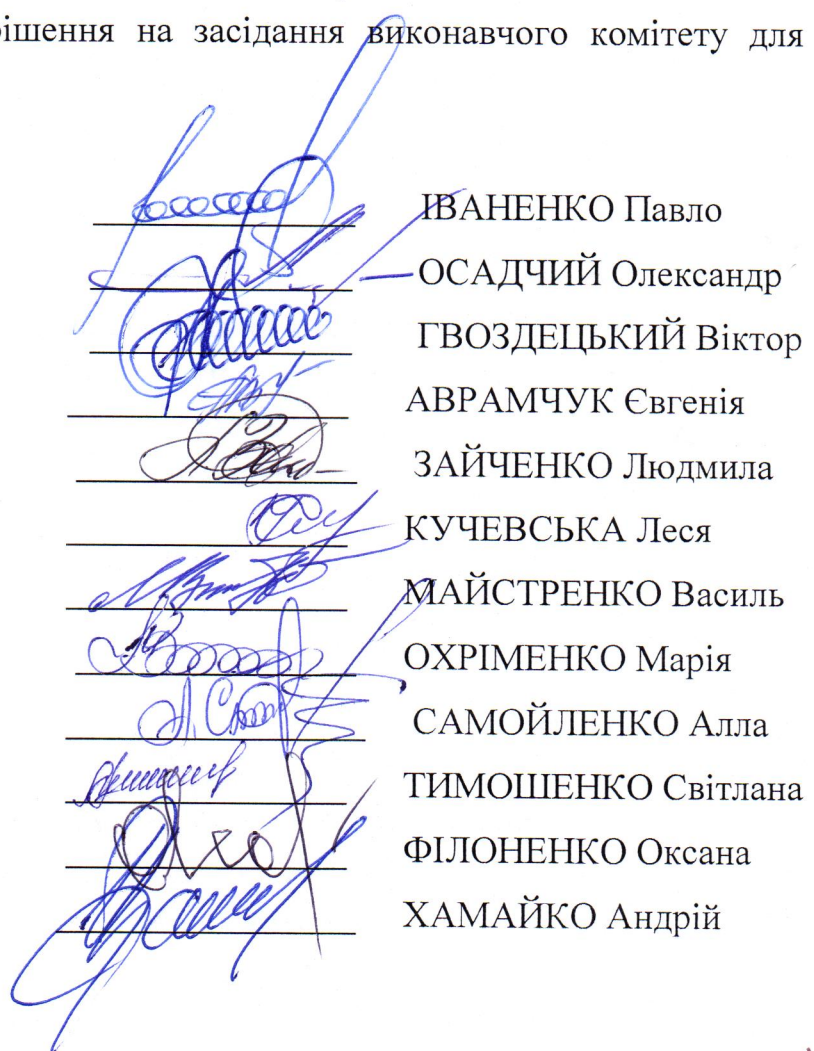 рішення на засідання виконавчого комітету для
ІВАНЕНКО Павло
ОСАДЧИЙ Олександр
ГВОЗДЕЦЬКИЙ Віктор
АВРАМЧУК Євгенія
ЗАЙЧЕНКО Людмила
КУЧЕВСЬКА Леся
МАЙСТРЕНКО Василь
ОХРІМЕНКО Марія
САМОЙЛЕНКО Алла
ТИМОШЕНКО Світлана
ФІЛОНЕНКО Оксана
ХАМАЙКО Андрій